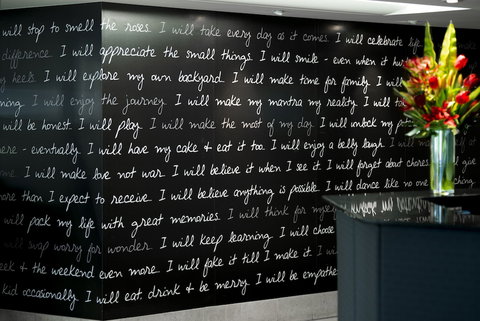 will stop to smell the roses. I will take every day as it comes. I will celebrate life
difference. I will appreciate the small things. I will smile - even when it hur
my heels. I will explore my own backyard. I will make time for family. I will
I will enjoy the journey. I will make my mantra my reality. I will to
will be honest. I will play. I will make the most of my day. I will unlock my po
here - eventually. I will have my cake & eat it too. I will enjoy a belly laugh. I
me. I will make love not war. I will believe it when I see it. I will forget about chores. I will give
more than I expect to receive. I will believe anything is possible. I will dance like no one
will pack my life with great memories. I will think for myself
will swap worry for wonder. I will keep learning. I will choose
week & the weekend even more. I will fake it till I make it. I wi
kid occasionally. I will eat drink & be merry. I will be empathe